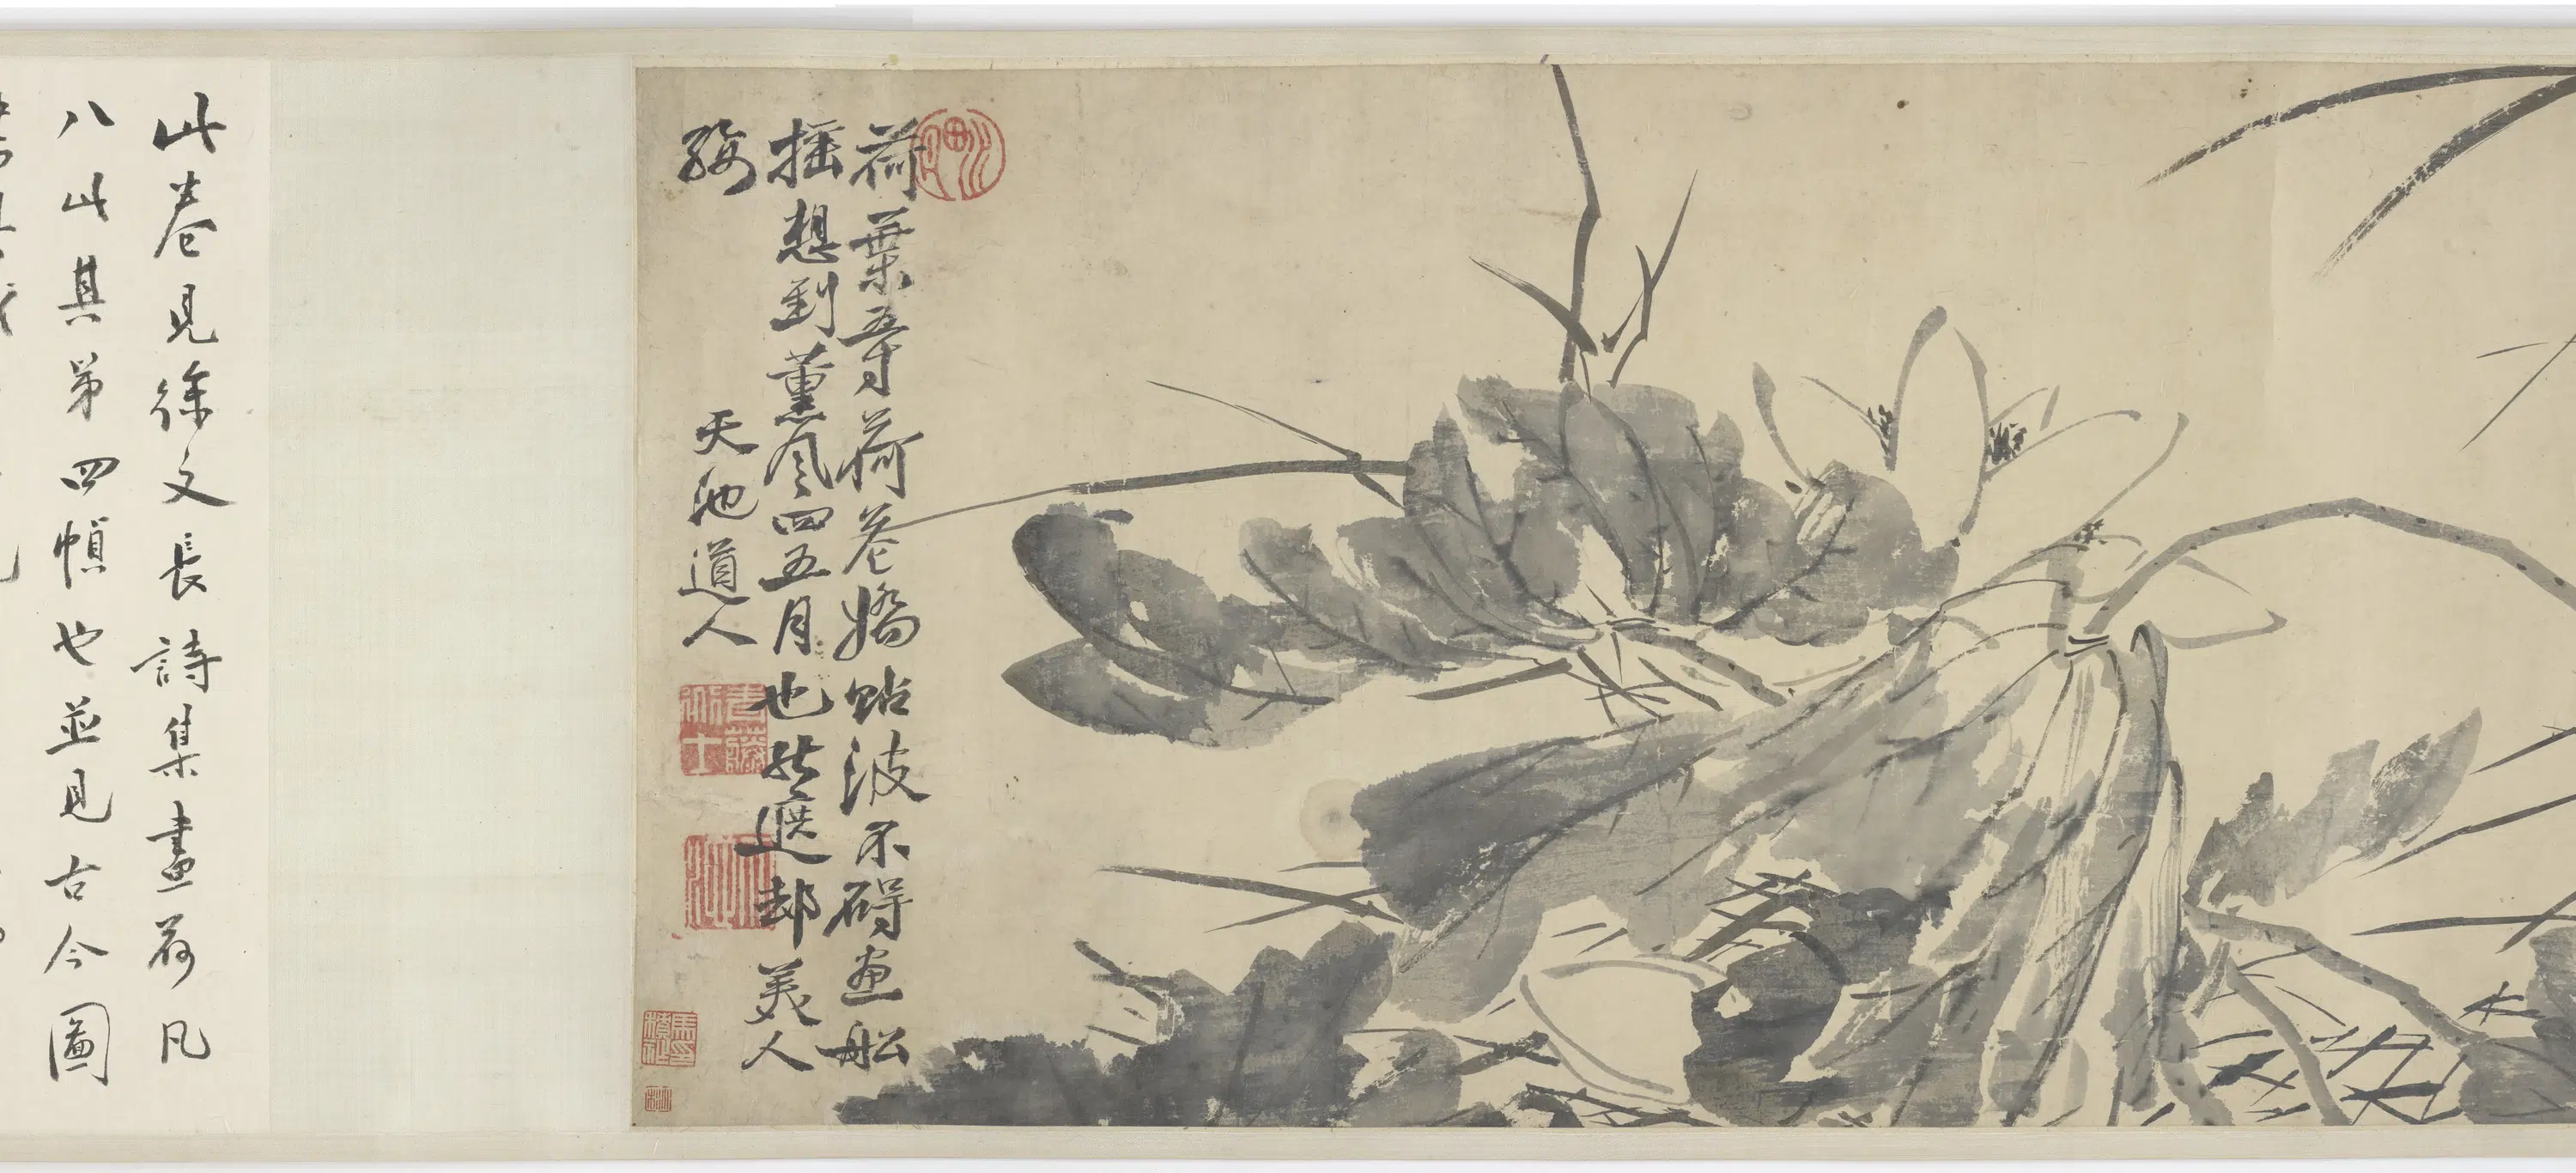 荷葉五寸荷花嬌貼波不碍畫船
搖想到薰風四五月也能遮却美人
腰
天池道人
青藤
此卷見徐文長詩集畫荷凡
八此其第四幀也並見古今圖